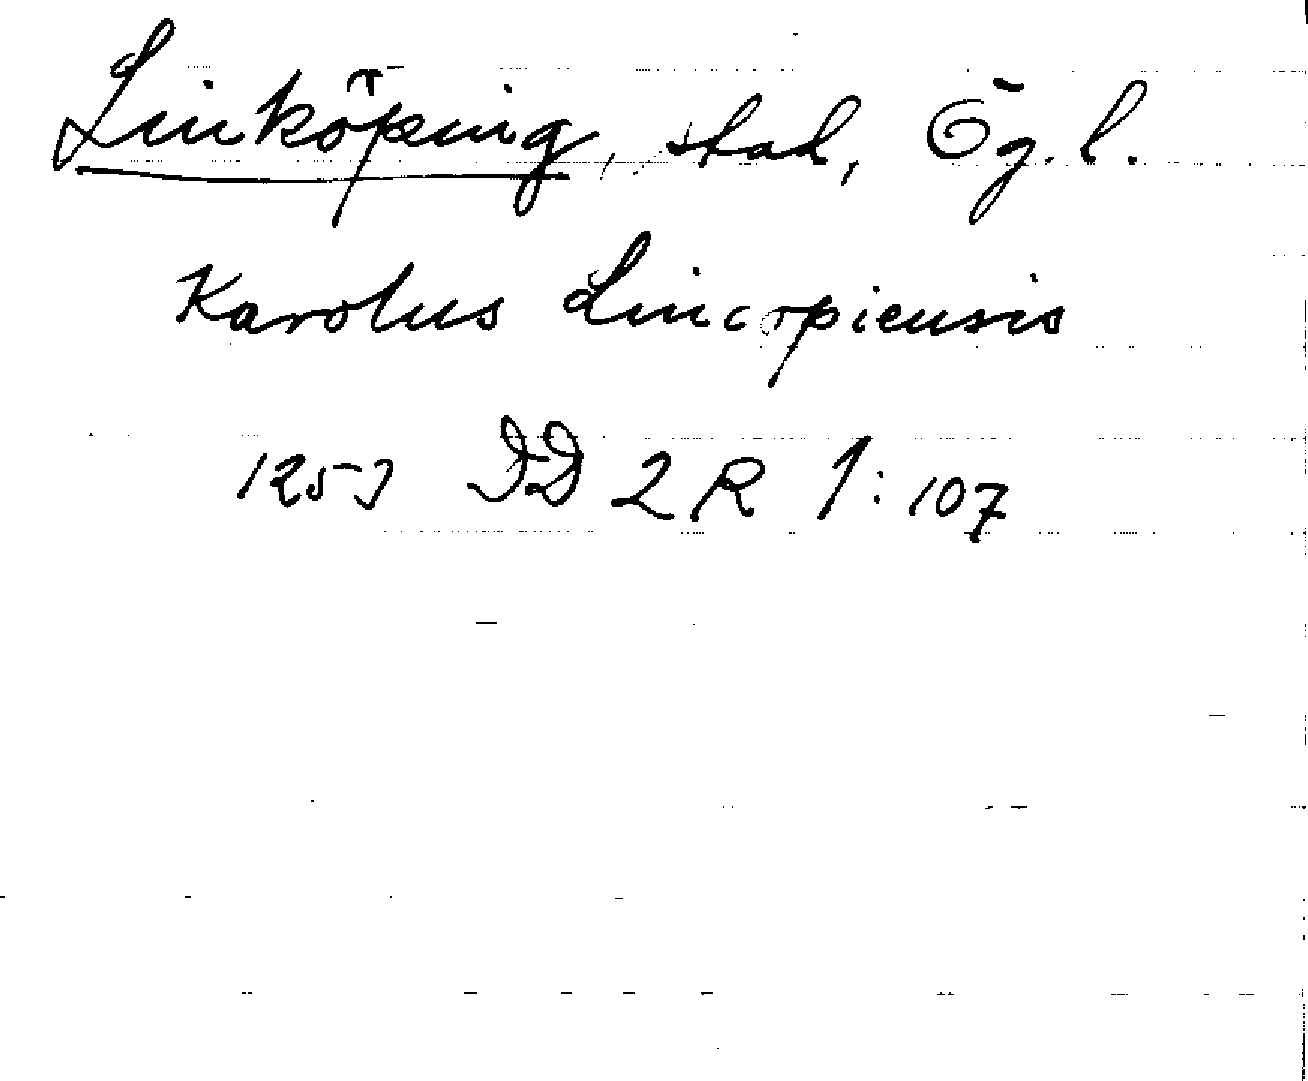 Linköping, stad, Ög. l.
Karolus Lincopiensis
1253 DD 2 R 1:107